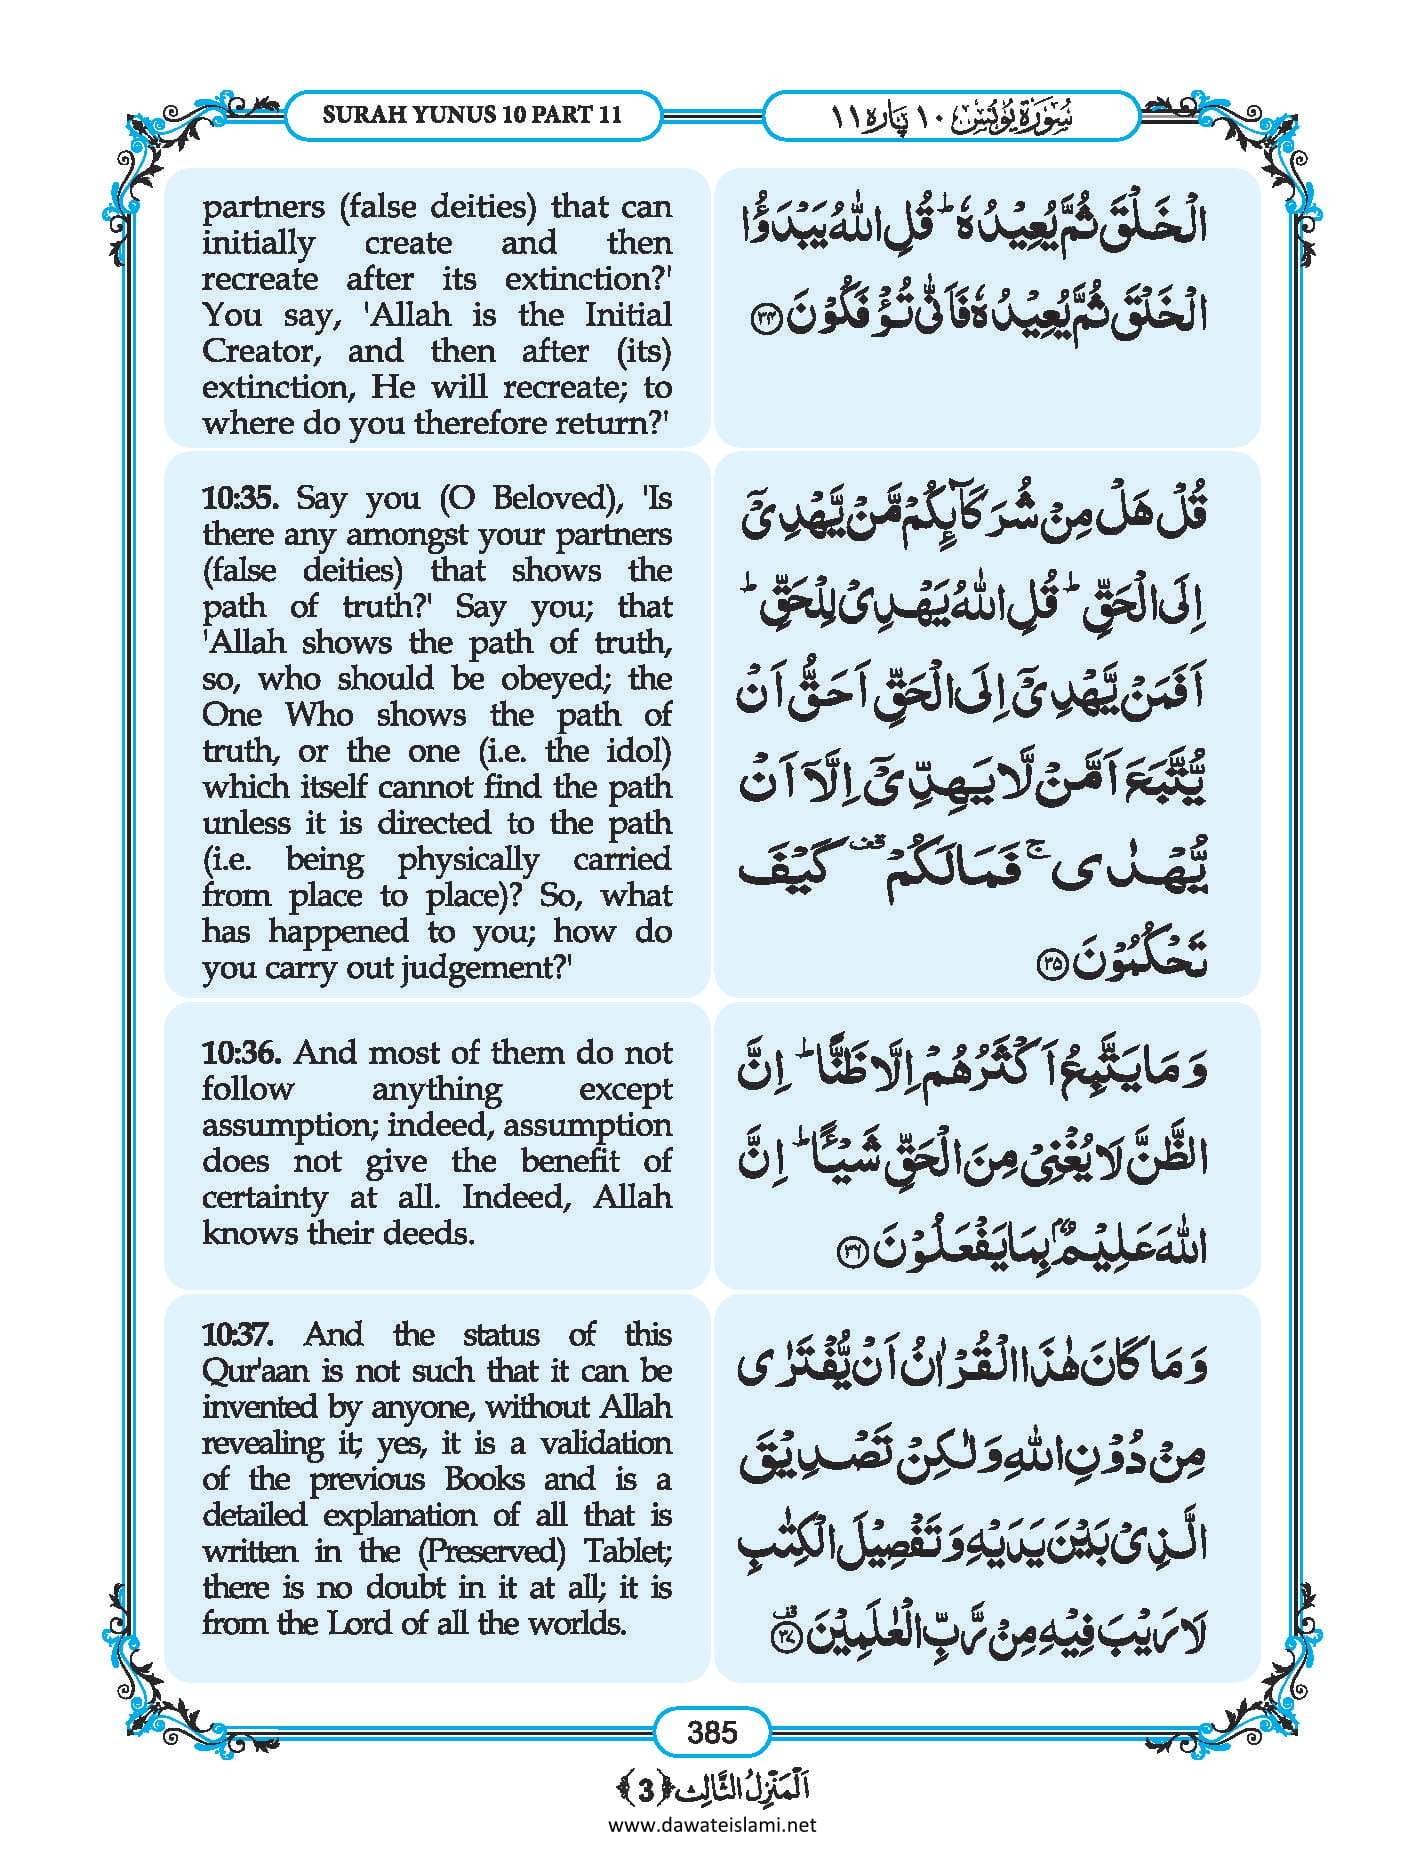 SURAH YUNUS 10 PART 11
سُوۡرَۃُ یُوۡنُس ۱۰ پَارہ ۱۱
partners (false deities) that can
initially create and then
recreate after its extinction?'
You say, 'Allah is the Initial
Creator, and then after (its)
extinction, He will recreate; to
where do you therefore return?'
الۡخَلۡقَ ثُمَّ یُعِیۡدُہٗ ؕ قُلِ اللّٰہُ یَبۡدَؤُا
الۡخَلۡقَ ثُمَّ یُعِیۡدُہٗ فَاَنّٰی تُؤۡفَکُوۡنَ ﴿۳۴﴾
10:35. Say you (O Beloved), 'Is
there any amongst your partners
(false deities) that shows the
path of truth?' Say you; that
'Allah shows the path of truth,
so, who should be obeyed; the
One Who shows the path of
truth, or the one (i.e. the idol)
which itself cannot find the path
unless it is directed to the path
(i.e. being physically carried
from place to place)? So, what
has happened to you; how do
you carry out judgement?'
قُلۡ ہَلۡ مِنۡ شُرَکَآئِکُمۡ مَّنۡ یَّہۡدِیۡۤ
اِلَی الۡحَقِّ ؕ قُلِ اللّٰہُ یَہۡدِیۡ لِلۡحَقِّ ؕ
اَفَمَنۡ یَّہۡدِیۡۤ اِلَی الۡحَقِّ اَحَقُّ اَنۡ
یُّتَّبَعَ اَمَّنۡ لَّا یَہِدِّیۡۤ اِلَّاۤ اَنۡ
یُّہۡدٰی ۚ فَمَا لَکُمۡ ۟ کَیۡفَ
تَحۡکُمُوۡنَ ﴿۳۵﴾
10:36. And most of them do not
follow anything except
assumption; indeed, assumption
does not give the benefit of
certainty at all. Indeed, Allah
knows their deeds.
وَ مَا یَتَّبِعُ اَکۡثَرُہُمۡ اِلَّا ظَنًّا ؕ اِنَّ
الظَّنَّ لَا یُغۡنِیۡ مِنَ الۡحَقِّ شَیۡـًٔا ؕ اِنَّ
اللّٰہَ عَلِیۡمٌۢ بِمَا یَفۡعَلُوۡنَ ﴿۳۶﴾
10:37. And the status of this
Qur'aan is not such that it can be
invented by anyone, without Allah
revealing it; yes, it is a validation
of the previous Books and is a
detailed explanation of all that is
written in the (Preserved) Tablet;
there is no doubt in it at all; it is
from the Lord of all the worlds.
وَ مَا کَانَ ہٰذَا الۡقُرۡاٰنُ اَنۡ یُّفۡتَرٰی
مِنۡ دُوۡنِ اللّٰہِ وَ لٰکِنۡ تَصۡدِیۡقَ
الَّذِیۡ بَیۡنَ یَدَیۡہِ وَ تَفۡصِیۡلَ الۡکِتٰبِ
لَا رَیۡبَ فِیۡہِ مِنۡ رَّبِّ الۡعٰلَمِیۡنَ ﴿۟۳۷﴾
385
اَلۡمَنۡزِلُ الثَّالِث ﴿3﴾
www.dawateislami.net